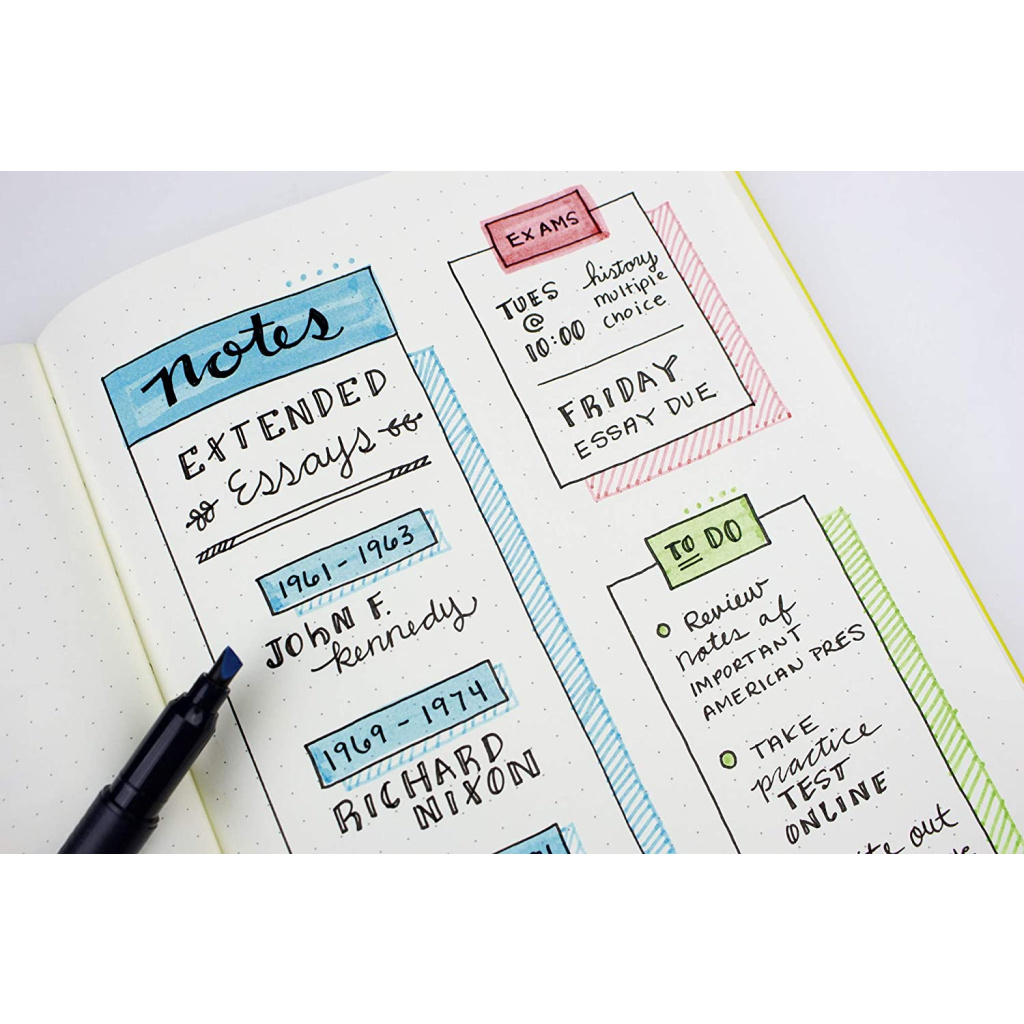 notes
EXTENDED
Essays
1961 - 1963
JOHN F.
kennedy
1969 - 1974
RICHARD
NIXON
EXAMS
TUES
@
10:00
history
multiple
choice
FRIDAY
ESSAY DUE
TO DO
Review
notes of
IMPORTANT
AMERICAN PRES
TAKE
practice
TEST
ONLINE
out